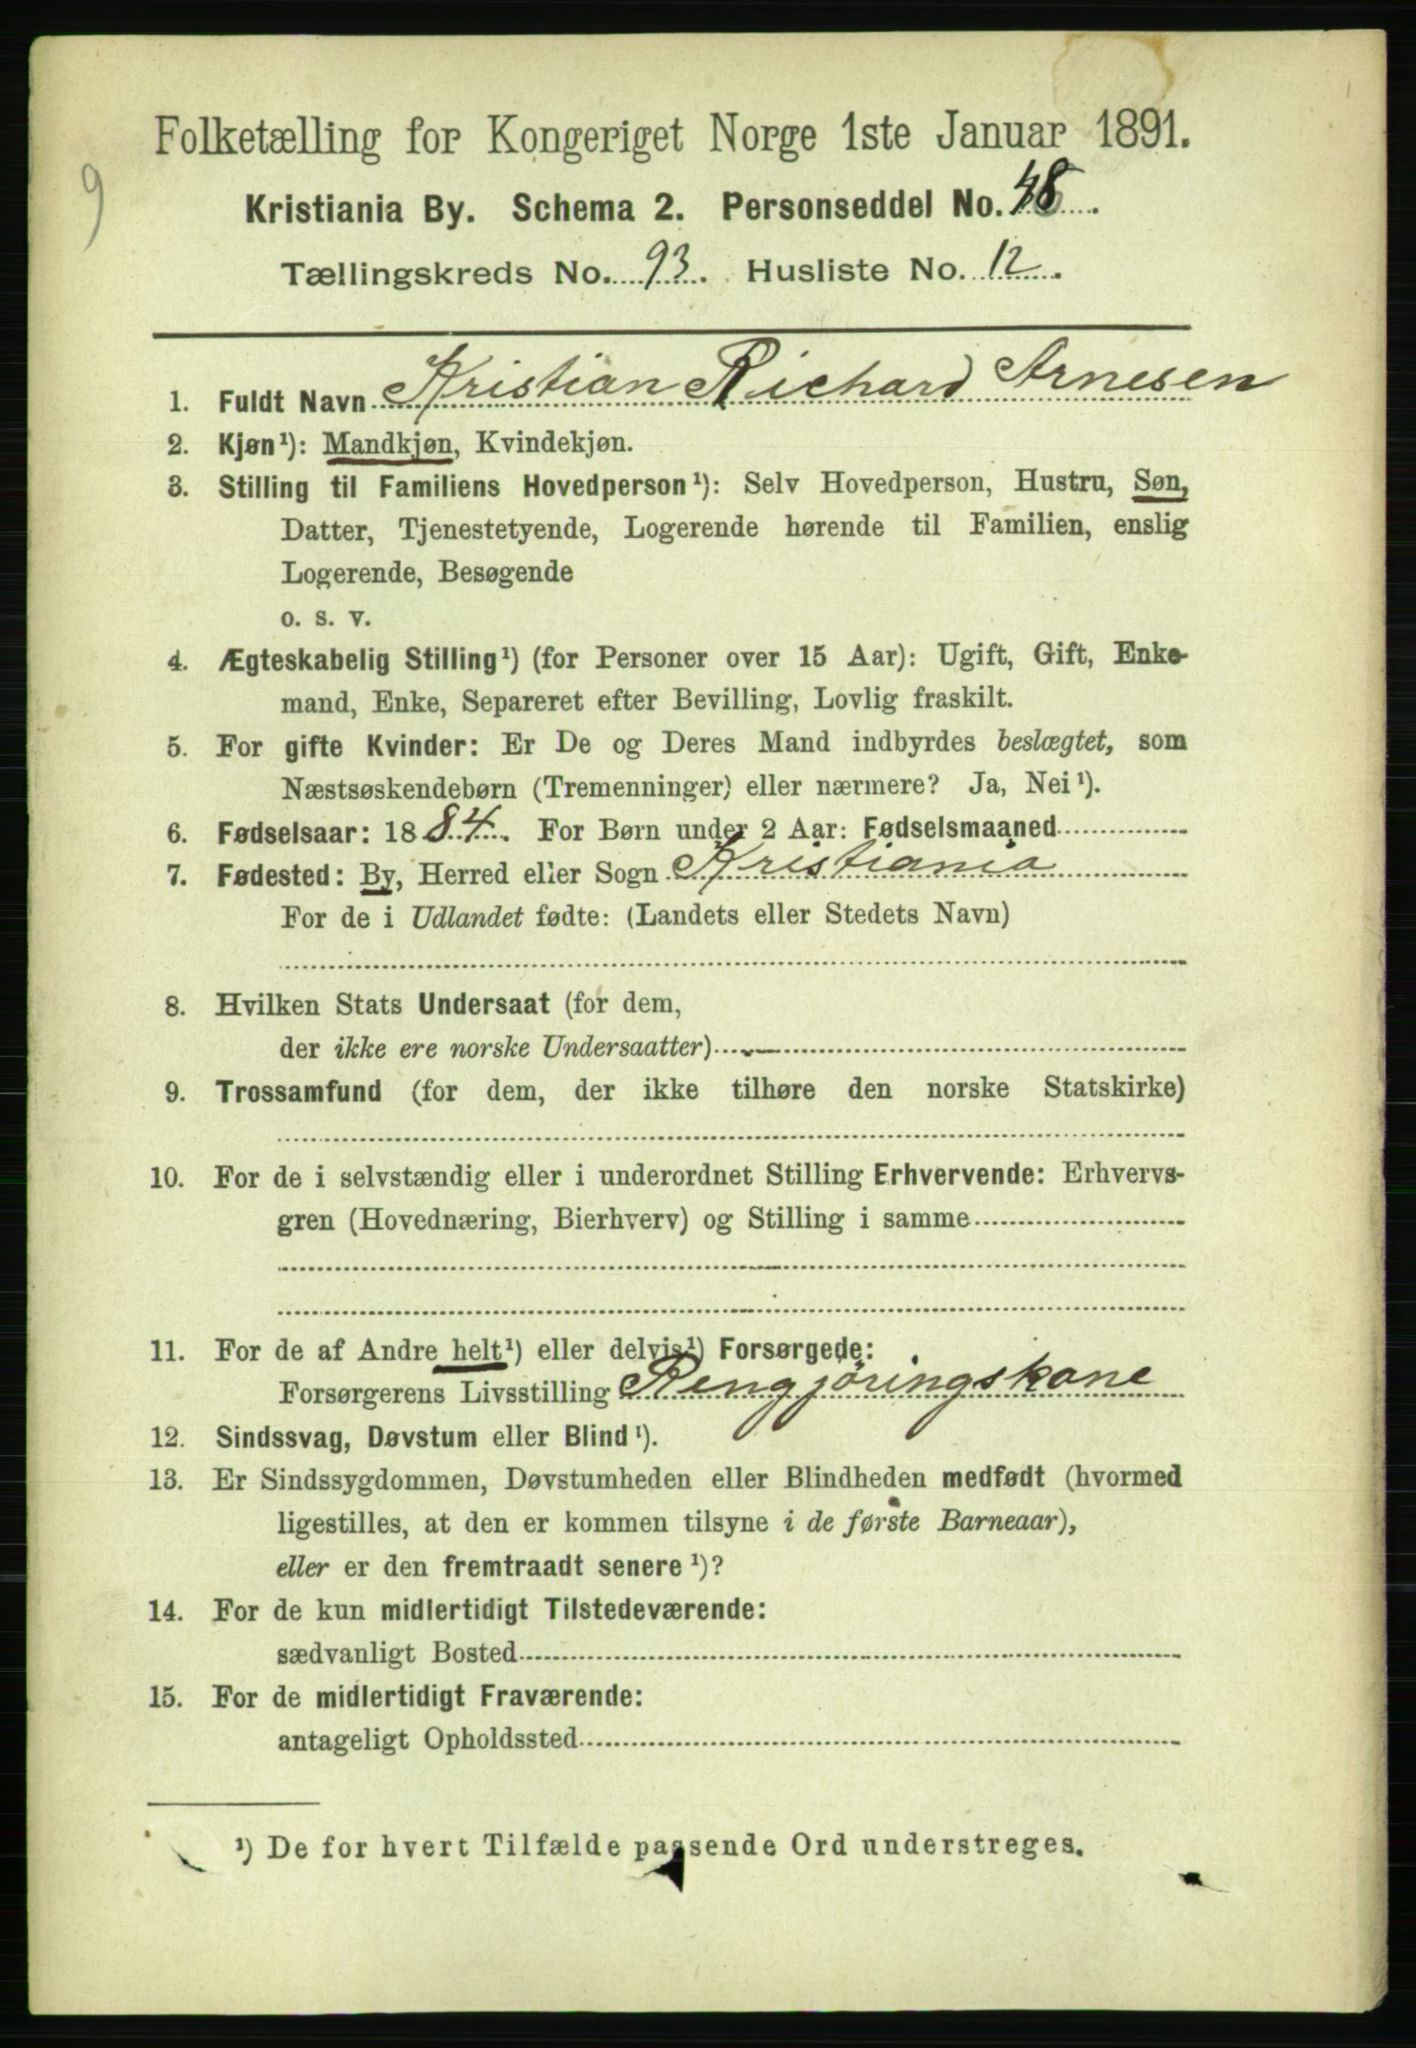 Folketælling for Kongeriget Norge 1ste Januar 1891.
9
Kristiania By. Schema 2. Personseddel No. 48.
Tællingskreds No. 93. Husliste No. 12.
1. Fuldt Navn Kristian Richard Arnesen
2. Kjøn¹): Mandkjøn, Kvindekjøn.
3. Stilling til Familiens Hovedperson¹): Selv Hovedperson, Hustru, Søn,
Datter, Tjenestetyende, Logerende hørende til Familien, enslig
Logerende, Besøgende
o. s. v.
4. Ægteskabelig Stilling¹) (for Personer over 15 Aar): Ugift, Gift, Enke-
mand, Enke, Separeret efter Bevilling, Lovlig fraskilt.
5. For gifte Kvinder: Er De og Deres Mand indbyrdes beslægtet, som
Næstsøskendebørn (Tremenninger) eller nærmere? Ja, Nei¹).
6. Fødselsaar: 1884. For Børn under 2 Aar: Fødselsmaaned
7. Fødested: By, Herred eller Sogn Kristiania
For de i Udlandet fødte: (Landets eller Stedets Navn)
8. Hvilken Stats Undersaat (for dem,
der ikke ere norske Undersaatter)
9. Trossamfund (for dem, der ikke tilhøre den norske Statskirke)
10. For de i selvstændig eller i underordnet Stilling Erhvervende: Erhvervs-
gren (Hovednæring, Bierhverv) og Stilling i samme
11. For de af Andre helt¹) eller delvis¹) Forsørgede:
Forsørgerens Livsstilling Rengjøringskone
12. Sindssvag, Døvstum eller Blind¹).
13. Er Sindssygdommen, Døvstumheden eller Blindheden medfødt (hvormed
ligestilles, at den er kommen tilsyne i de første Barneaar),
eller er den fremtraadt senere¹)?
14. For de kun midlertidigt Tilstedeværende:
sædvanligt Bosted
15. For de midlertidigt Fraværende:
antageligt Opholdssted
¹) De for hvert Tilfælde passende Ord understreges.